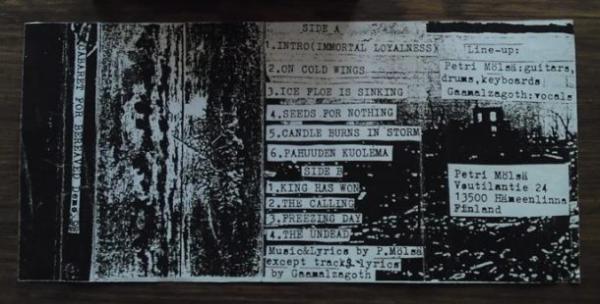 CABARET FOR BEREAVED Demo
SIDE A
1.INTRO(IMMORTAL LOYALNESS)
2.ON COLD WINGS
3.ICE FLOE IS SINKING
4.SEEDS FOR NOTHING
5.CANDLE BURNS IN STORM
6.PAHUUDEN KUOLEMA
SIDE B
1.KING HAS WON
2.THE CALLING
3.FREEZING DAY
4.THE UNDEAD
Music&Lyrics by P.Mölsä
except track3-lyrics
by Gaamalzagoth
Line-up:
Petri Mölsä:guitars,
drums,keyboards
Gaamalzagoth:vocals
Petri Mölsä
Voutilantie 24
13500 Hämeenlinna
Finland